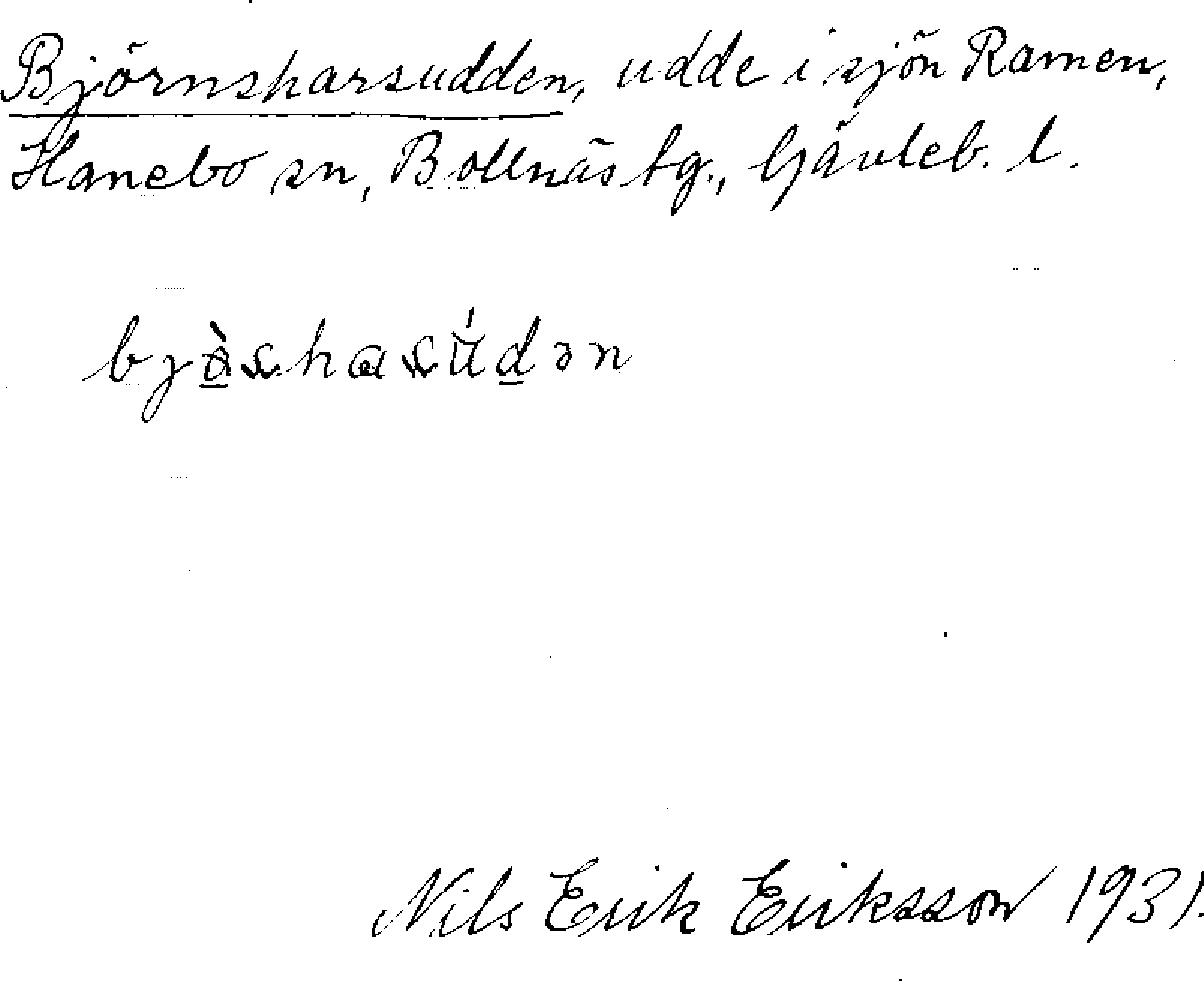 Björnskarsudden, udde i sjön Ramen,
Hanebo sn, Bollnäs tg., Gävleb. l.
Nils Erik Eriksson 1931.